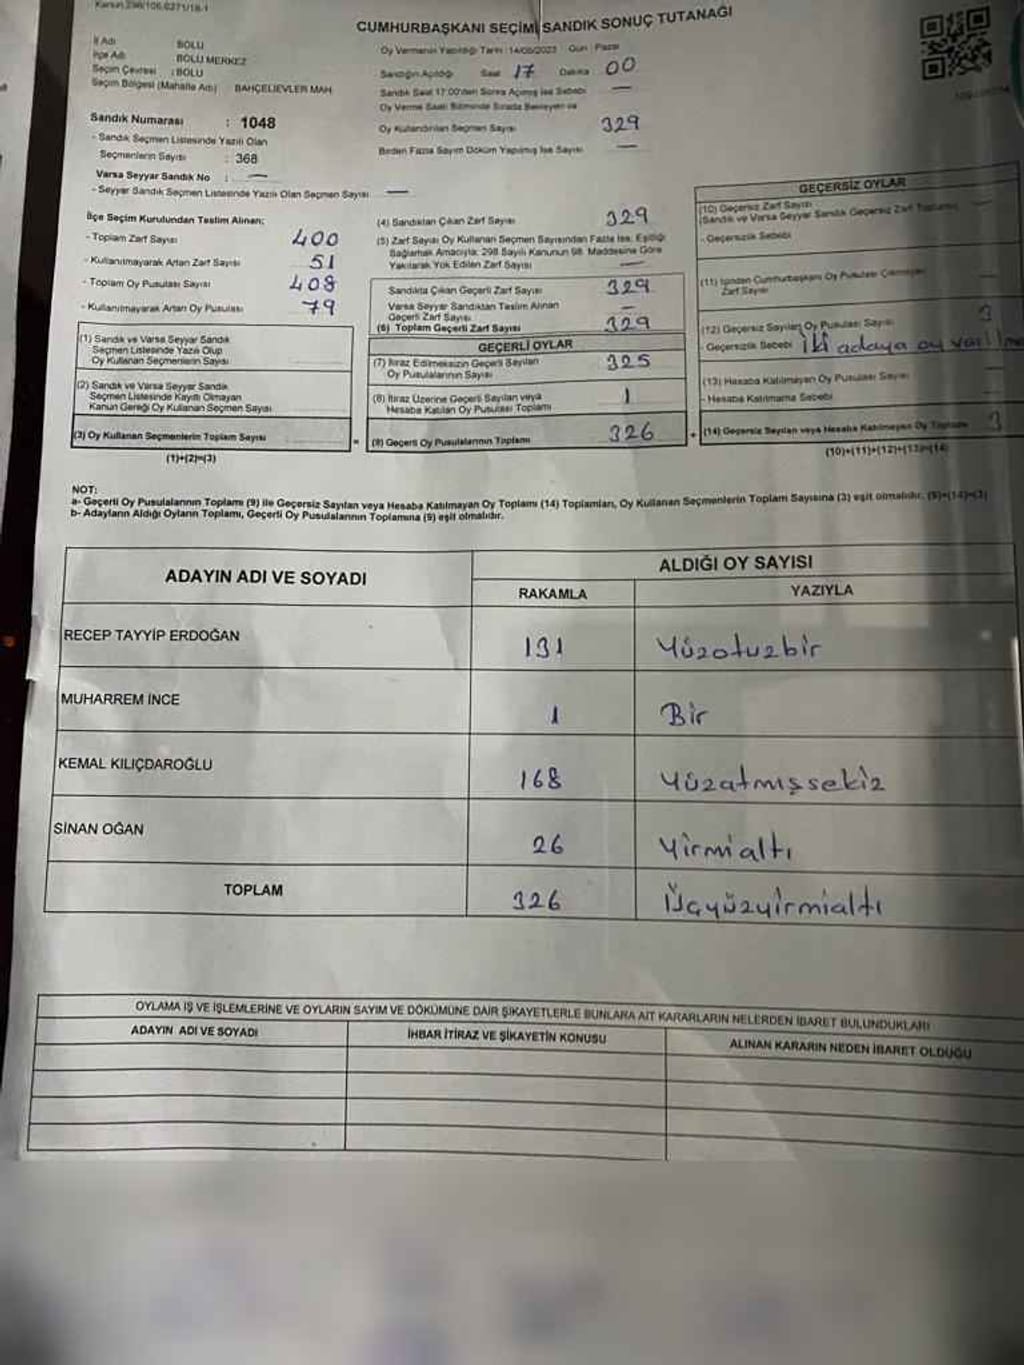 CUMHURBAŞKANI SEÇİMİ SANDIK SONUÇ TUTANAĞI
İl Adı BOLU
İlçe Adı BOLU MERKEZ
Seçim Çevresi : BOLU
Seçim Bölgesi (Mahalle Adı) BAHÇELİEVLER MAH.
Sandık Numarası : 1048
- Sandık Seçmen Listesinde Yazılı Olan
Seçmenlerin Sayısı : 368
Varsa Seyyar Sandık No : —
- Seyyar Sandık Seçmen Listesinde Yazılı Olan Seçmen Sayısı —
Oy Vermenin Yapıldığı Tarih : 14/05/2023 Gün : Pazar
Sandığın Açıldığı Saat 17 Dakika 00
Sandık Saat 17:00'den Sonra Açılmış İse Sebebi —
Oy Verme Saati Bitiminde Sırada Bekleyen ve
Oy Kullandırılan Seçmen Sayısı 329
Birden Fazla Sayım Döküm Yapılmış İse Sayısı —
İlçe Seçim Kurulundan Teslim Alınan:
- Toplam Zarf Sayısı 400
- Kullanılmayarak Artan Zarf Sayısı 51
- Toplam Oy Pusulası Sayısı 408
- Kullanılmayarak Artan Oy Pusulası 79
(1) Sandık ve Varsa Seyyar Sandık
Seçmen Listesinde Yazılı Olup
Oy Kullanan Seçmen Sayısı
(2) Sandık ve Varsa Seyyar Sandık
Seçmen Listesinde Kayıtlı Olmayan
Kanun Gereği Oy Kullanan Seçmen Sayısı
(3) Oy Kullanan Seçmenlerin Toplam Sayısı
(1)+(2)=(3)
(4) Sandıktan Çıkan Zarf Sayısı 329
(5) Zarf Sayısı Oy Kullanan Seçmen Sayısından Fazla İse, Eşitliği
Sağlamak Amacıyla; 298 Sayılı Kanunun 98. Maddesine Göre
Yakılarak Yok Edilen Zarf Sayısı —
Sandıkta Çıkan Geçerli Zarf Sayısı 329
Varsa Seyyar Sandıktan Teslim Alınan
Geçerli Zarf Sayısı —
(6) Toplam Geçerli Zarf Sayısı 329
GEÇERLİ OYLAR
(7) İtiraz Edilmeksizin Geçerli Sayılan
Oy Pusulalarının Sayısı 325
(8) İtiraz Üzerine Geçerli Sayılan veya
Hesaba Katılan Oy Pusulası Toplamı 1
= (9) Geçerli Oy Pusulalarının Toplamı 326
GEÇERSİZ OYLAR
(10) Geçersiz Zarf Sayısı
(Sandık ve Varsa Seyyar Sandık Geçersiz Zarf Toplamı) —
- Geçersizlik Sebebi
(11) İçinden Cumhurbaşkanı Oy Pusulası Çıkmayan
Zarf Sayısı —
(12) Geçersiz Sayılan Oy Pusulası Sayısı 3
- Geçersizlik Sebebi iki adaya oy
(13) Hesaba Katılmayan Oy Pusulası Sayısı —
- Hesaba Katılmama Sebebi —
+ (14) Geçersiz Sayılan veya Hesaba Katılmayan Oy Toplamı 3
(10)+(11)+(12)+(13)=(14)
NOT:
a- Geçerli Oy Pusulalarının Toplamı (9) ile Geçersiz Sayılan veya Hesaba Katılmayan Oy Toplamı (14) Toplamları, Oy Kullanan Seçmenlerin Toplam Sayısına (3) eşit olmalıdır. (9)+(14)=(3)
b- Adayların Aldığı Oyların Toplamı, Geçerli Oy Pusulalarının Toplamına (9) eşit olmalıdır.
ADAYIN ADI VE SOYADI ALDIĞI OY SAYISI
RAKAMLA YAZIYLA
RECEP TAYYİP ERDOĞAN 131 Yüzotuzbir
MUHARREM İNCE 1 Bir
KEMAL KILIÇDAROĞLU 168 Yüzatmışsekiz
SİNAN OĞAN 26 Yirmialtı
TOPLAM 326 Üçyüzyirmialtı
OYLAMA İŞ VE İŞLEMLERİNE VE OYLARIN SAYIM VE DÖKÜMÜNE DAİR ŞİKAYETLERLE BUNLARA AİT KARARLARIN NELERDEN İBARET BULUNDUKLARI
ADAYIN ADI VE SOYADI İHBAR İTİRAZ VE ŞİKAYETİN KONUSU ALINAN KARARIN NEDEN İBARET OLDUĞU